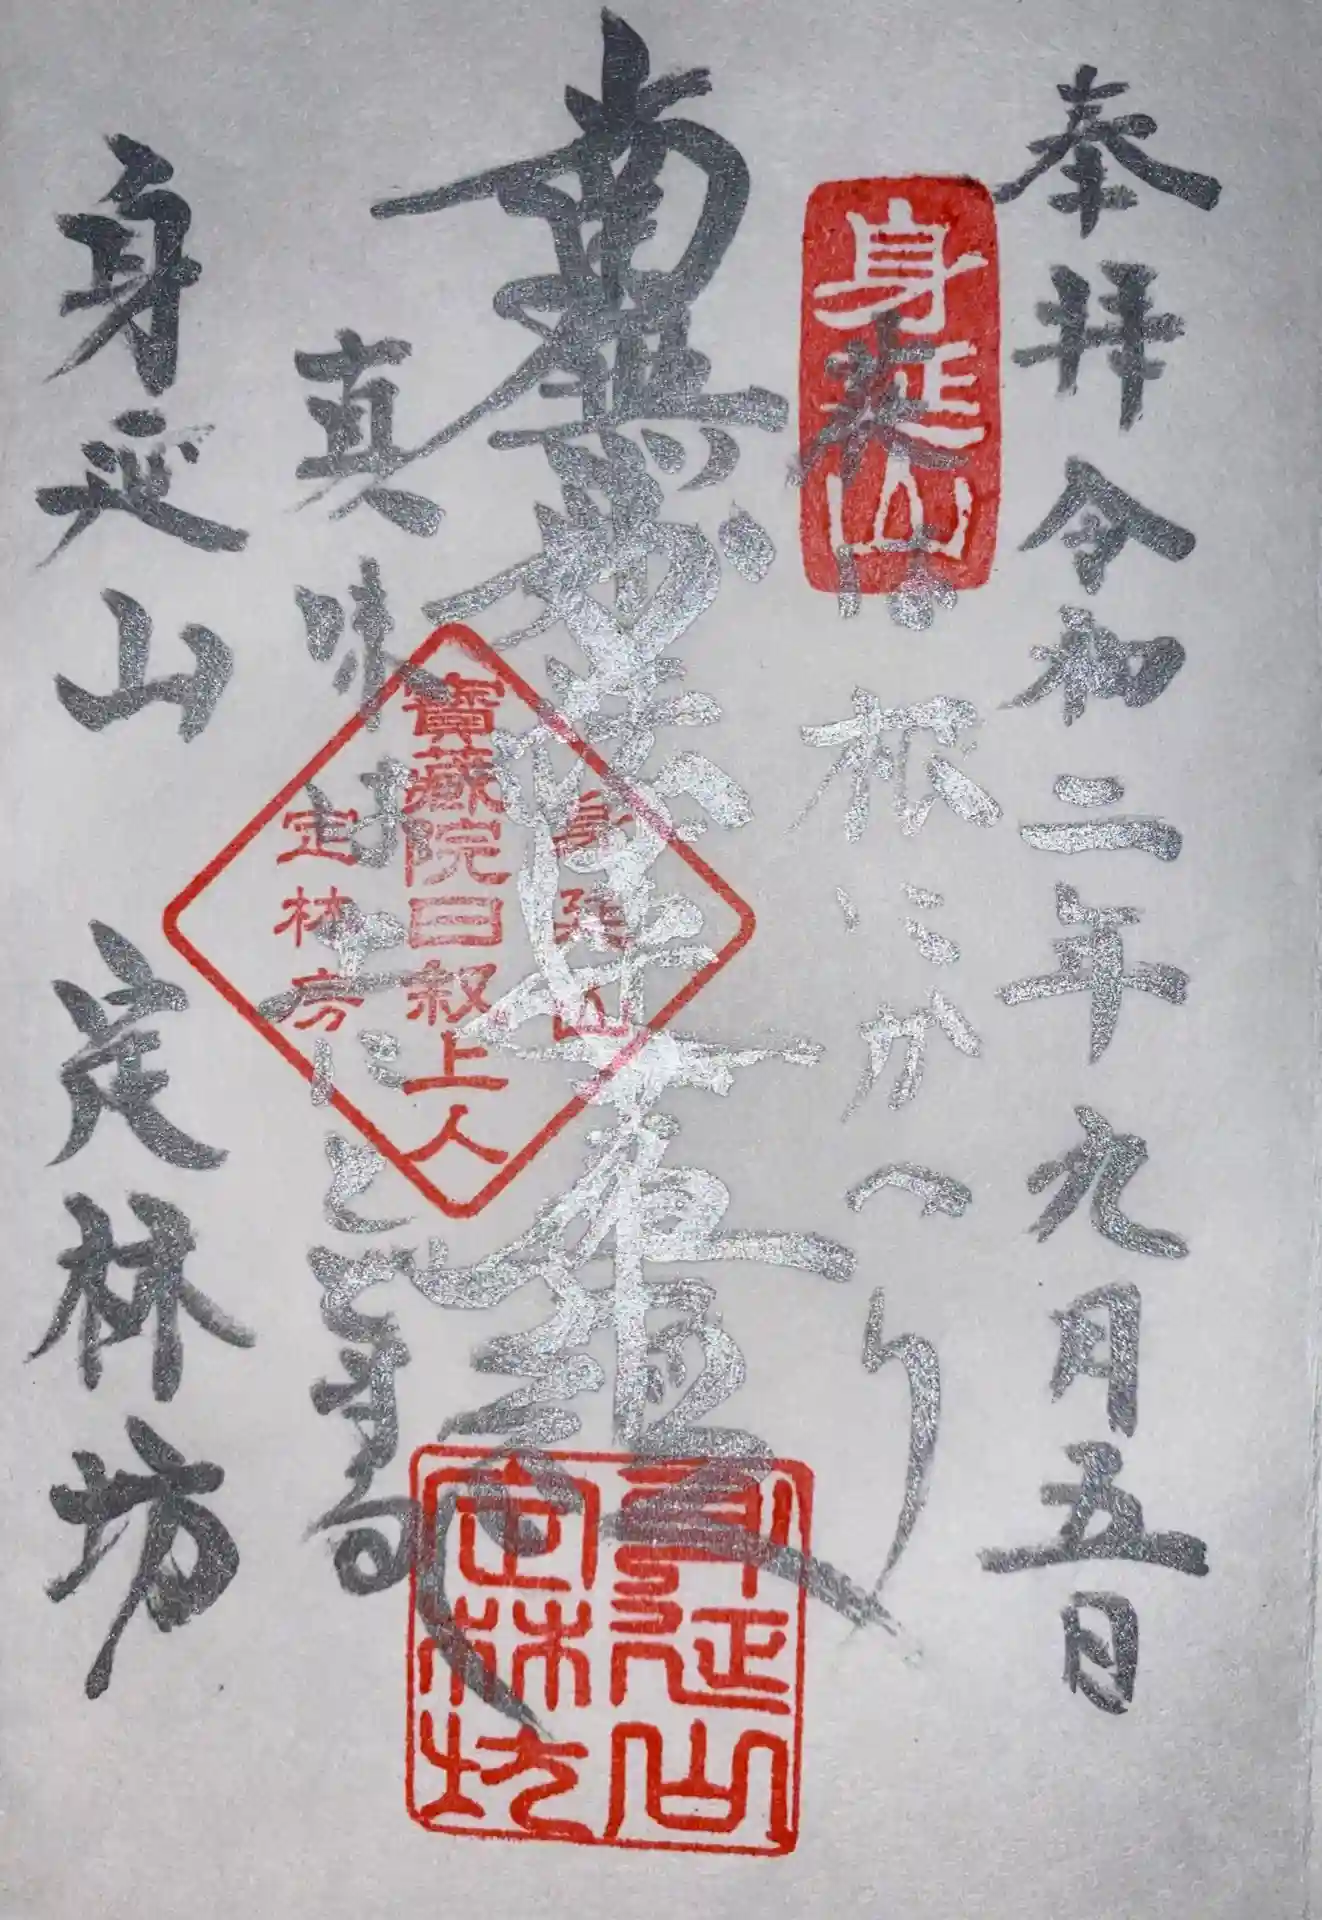 奉拝 令和二年九月五日
身延山
華は根にかへり
南無妙法蓮華経
真味は土にとどまる
身延山
寶藏院日叙上人
定林房
身延山
定林坊
身延山 定林坊